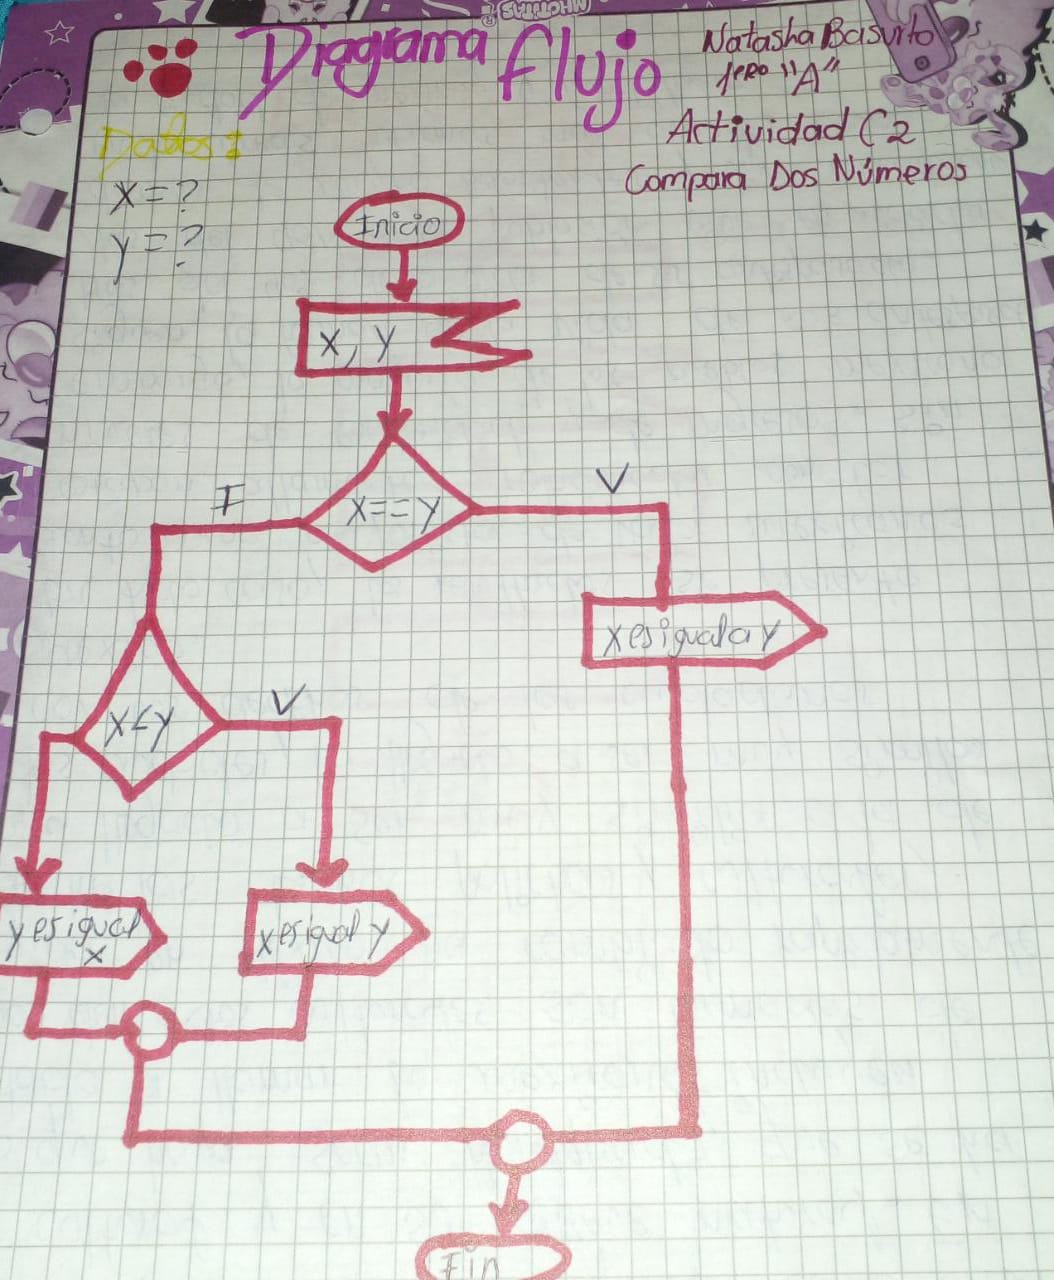 Diagrama flujo
Natasha Basurto
1ERO "A"
Actividad C2
Compara Dos Números
Datos:
X = ?
y = ?
Inicio
X, Y
X==Y
F
V
x es igual a y
X<Y
V
y es igual
x
x es igual y
Fin